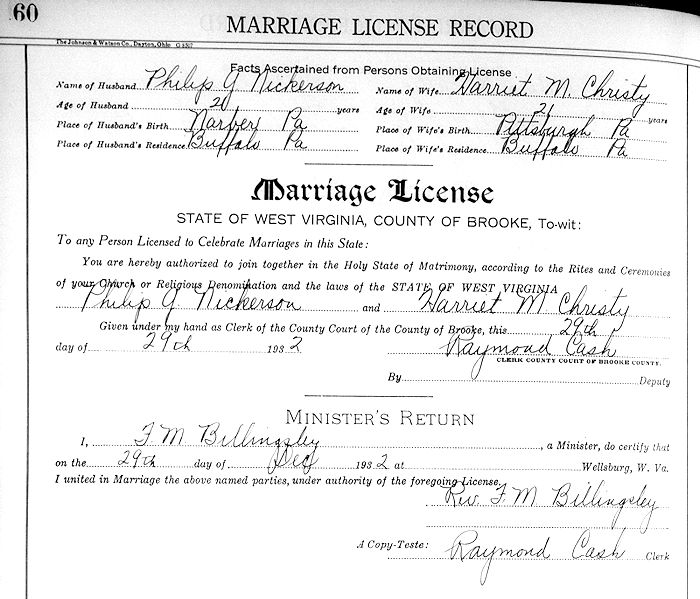 60
MARRIAGE LICENSE RECORD
The Johnson & Watson Co., Dayton, Ohio G 8507
Facts Ascertained from Persons Obtaining License
Name of Husband Philip G Nickerson Name of Wife Harriet M. Christy
Age of Husband 21 years Age of Wife 21 years
Place of Husband's Birth Pa Place of Wife's Birth Pittsburgh Pa
Place of Husband's Residence Buffalo Pa Place of Wife's Residence Buffalo Pa
Marriage License
STATE OF WEST VIRGINIA, COUNTY OF BROOKE, To-wit:
To any Person Licensed to Celebrate Marriages in this State:
You are hereby authorized to join together in the Holy State of Matrimony, according to the Rites and Ceremonies
of your Church or Religious Denomination and the laws of the STATE OF WEST VIRGINIA
Philip G Nickerson and Harriet M Christy
Given under my hand as Clerk of the County Court of the County of Brooke, this 29th
day of 29th 1932 Raymond Cash
CLERK COUNTY COURT OF BROOKE COUNTY.
By Deputy
MINISTER'S RETURN
I, F. M. Billingsley, a Minister, do certify that
on the 29th day of Dec 1932 at Wellsburg, W. Va.
I united in Marriage the above named parties, under authority of the foregoing License.
Rev. F. M. Billingsley
A Copy-Teste: Raymond Cash Clerk